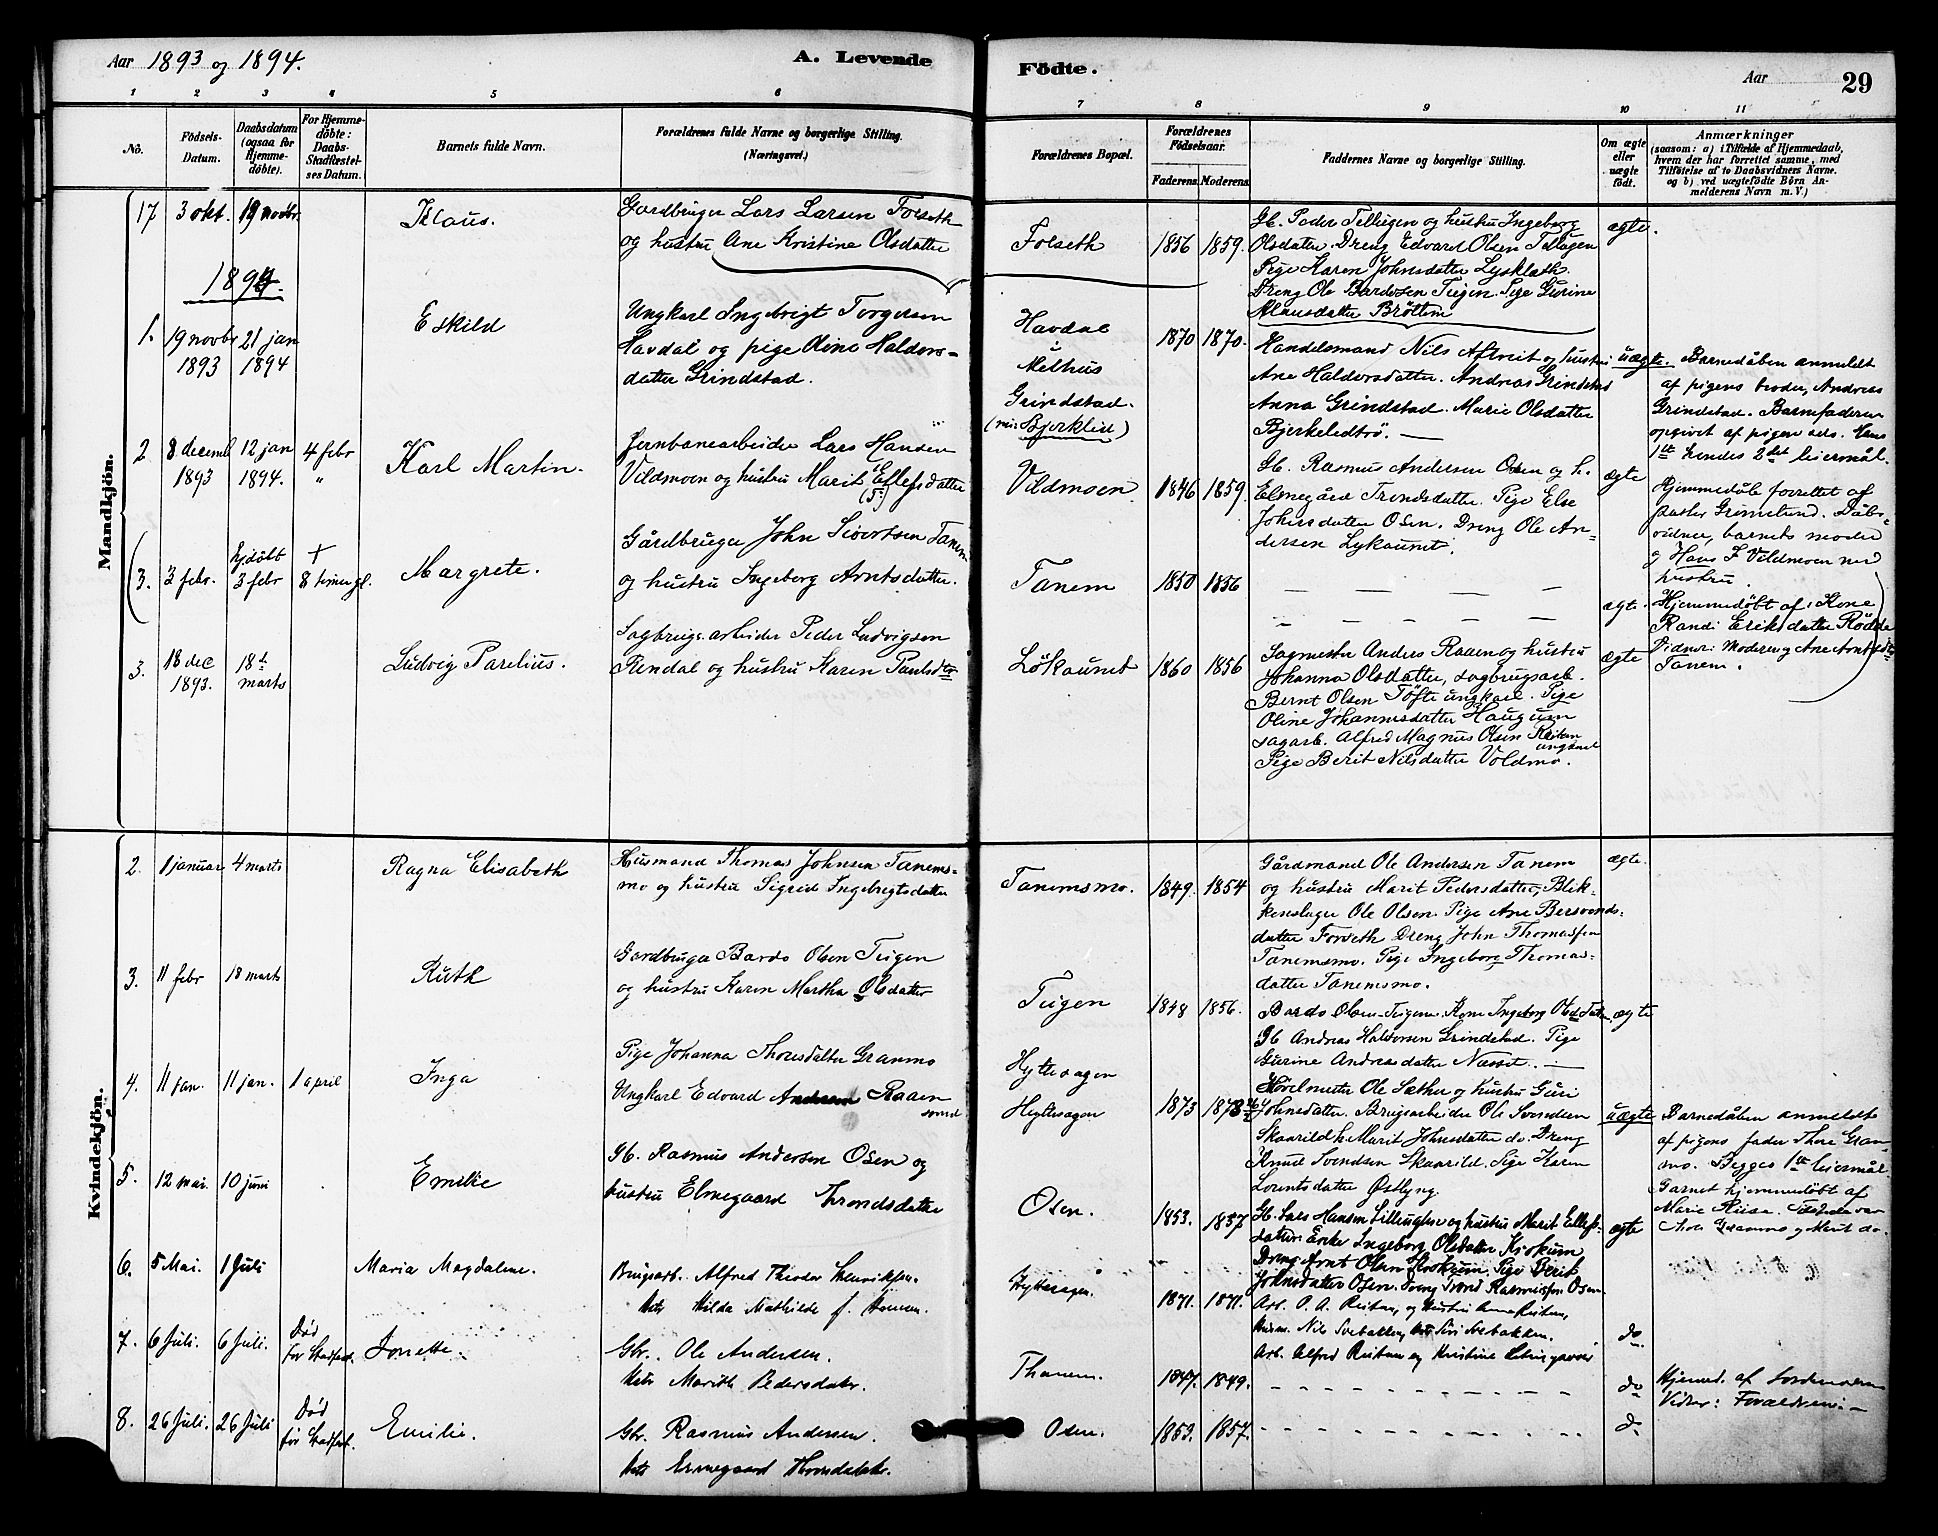 Aar 1893 og 1894.
A. Levende
Födte.
Aar
29
1 2 3 4 5 6 7 8 9 10 11
No.
Födsels-
Datum.
Daabsdatum
(ogsaa for
Hjemme-
döbte).
For Hjemme-
döbte:
Daabs-
Stadfæstel-
ses Datum.
Barnets fulde Navn.
Forældrenes fulde Navne og borgerlige Stilling.
(Næringsvei.)
Forældrenes Bopæl.
Forældrenes
Födselsaar.
Faderens. Moderens.
Faddernes Navne og borgerlige Stilling.
Om ægte
eller
uægte
födt.
Anmærkninger
(saasom: a) i Tilfælde af Hjemmedaab,
hvem der har forrettet samme, med
Tilföielse af to Daabsvidners Navne.
og b) ved uægtefödte Börn An-
melderens Navn m. V.)
Mandkjön.
17 3 okt. 19 novbr. Klaus.
Gardbruger Lars Larsen Folseth
og hustru Ane Kristine Olsdatter
Folseth 1856 1859.
Gb. Peder Tellugen og hustru Ingeborg
Olsdatter. Dreng Edvard Olsen Tellugen
Pige Karen Johnsdatter Lysklæth.
Dreng Ole Bardosen Teigen. Pige Gurine
Klausdatter Bröttem
ægte.
1894.
1. 19 novbr 1893 21 jan 1894 Eskild
Ungkarl Ingebrigt Torgersen
Havdal og pige Olina Haldors-
datter Grindstad.
Havdal
i
Melhus
Grindstad.
(nu Bjerklien)
1870 1870.
Handelsmand Nils Aftreit og hustru
Ane Haldorsdatter. Andreas Grindstad
Anna Grindstad. Marie Olsdatter
Bjerkeledtrö. —
uægte.
Barnedåben anmeldt
af pigens broder, Andreas
Grindstad. Barnefaderen
opgivet af pigen selv. Hans
1ste hendes 2det leiermål.
2 8 decemb 1893 12 jan 1894. 4 febr " Karl Martin.
Jernbanearbeider Lars Hansen
Vildmoen og hustru Marit Ellefsdatter
Vildmoen 1846 1859.
Gb. Rasmus Andersen Osen og h.
Elmegård Trondsdatter. Pige Else
Johnsdatter Osen. Dreng Ole An-
dersen Lykaunet.
ægte
Hjemmedöbe forrettet af
pastor Grimelund. Dåbs-
vidner, barnets moder
og Hans J Vildmoen med
hustru.
3. 3 febr. hj.döbt 3 febr + 8 timer gl. Margrete.
Gårdbruger John Sivertsen Tanem
og hustru Ingeborg Arntsdatter.
Tanem 1850 1856
— — — —
ægte.
Hjemmedöbt af: Kone
Randi Eriksdatter Rödde
Vidner: Moderen og Ane Arntsdtr
Tanem.
3. 18 dec 1893. 18de marts Ludvig Parelius.
Sagbrugsarbeider Peder Ludvigsen
Rendal og hustru Karen Paulsdtr
Lökaunet 1860 1856
Sagmester Anders Raaen og hustru
Johanna Olsdatter, sagbrugsarb.
Bernt Olsen Töfte ungkarl. Pige
Oline Johannesdatter Haugum
sagarb. Alfred Magnus Olsen Reitan
ungkarl
Pige Berit Nilsdatter Voldmo.
ægte
Kvindekjön.
2. 1 januar 4 marts Ragna Elisabeth
Husmand Thomas Johnsen Tanems-
mo og hustru Sigrid Ingebrigtsdatter
Tanemsmo. 1849. 1854
Gårdmand Ole Andersen Tanem
og hustru Marit Pedersdatter, Blik-
kenslager Ole Olsen. Pige Ane Bersvends-
datter Forseth Dreng John Thomassen
Tanemsmo. Pige Ingeborg Thomas-
datter Tanemsmo.
ægte.
3. 11 febr 18 marts Ruth
Gardbruger Bardo Olsen Teigen
og hustru Karen Martha Olsdatter
Teigen 1848 1856.
Bardo Olsen Teigen. Kone Ingeborg Olsdatter.
Gb. Andreas Haldorsen Grindstad. Pige
Gurine Andreasdatter Næsset. —
ægte
4. 11 jan. 11 jan. 1 april Inga
Pige Johanna Thoresdatter Granmo
Ungkarl Edvard Andersen Raaen
Hyttesagen
Hyttesagen 1873 1873
Hövelmester Ole Sæther og hustru Guri
Johnsdatter. Brugsarbeider Ole Svendsen
Skaarild h. Marit Johnsdatter do. Dreng
Knud Svendsen Skaarild. Pige Karen
Lorentsdatter Östlyng.
uægte
Barnedåben anmeldt
af pigens fader Thore Gran-
mo. Begges 1ste leiermål.
Barnet hjemmedöbt af
Marie Riise.
5. 12 mai. 10 juni Emilie
Gb. Rasmus Andersen Osen og
hustru Elmegaard Trondsdatter
Osen. 1853. 1857
Gb. Lars Hansen Lilleugen og hustru Marit Ellefs-
datter. Enke Ingeborg Olsdatter Krokum
Dreng Arnt Olsen Krokum. Pige Berit
Johnsdatter Osen. Dreng Trond Rasmussen Osen
ægte
6. 5 Mai. 1 Juli Maria Magdalene.
Brugsarb. Alfred Theodor Henriksen.
Hstr Hilda Mathilde f. Homan.
Hyttesagen. 1871. 1871.
Arb. P. A. Reitan, og Hustru Anna Reitan,
Husm. Nils Svebakken, hstr Siri Svebakken.
Arb. Alfred Reitan og Kristine
do
7. 6 Juli. 6 Juli. Död för Stadfæst. Jonette.
Gbr. Ole Andersen.
Hstr Marith Pedersdatr.
Thanem. 1847. 1849.
- - - - - - - -
do
Hjemmed. af Jordemoderen
Vidner: Forældrene. -
8. 26 Juli. 26 Juli Död för Stadfæst. Emilie.
Gbr. Rasmus Andersen.
Hstr Ermegaard Thronsdatr.
Osen. 1853. 1857.
- - - - - - - -
do